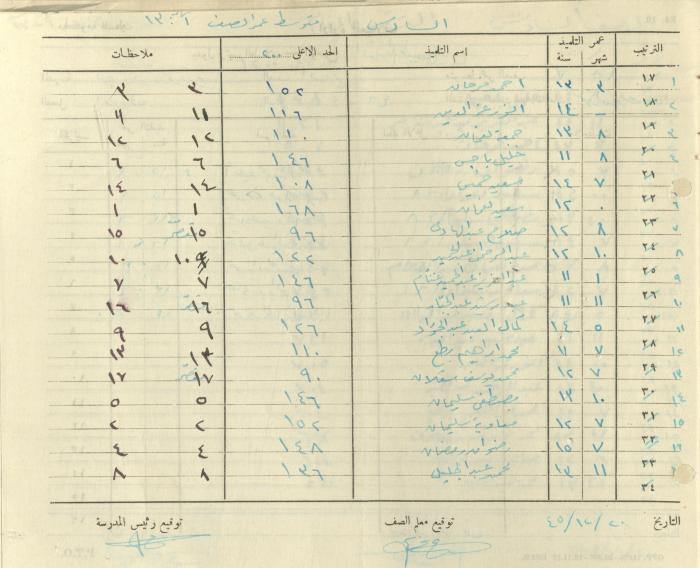 السادس متوسط عمر الصف ١٣
الترتيب عمر التلميذ شهر سنة اسم التلميذ الحد الاعلى ٢٠٠ ملاحظات
١ ١٧ ٣ ١٣ احمد فرحان ١٥٢ ٣ ٣
٢ ١٨ – ١٤ انور عز الدين ١١٦ ١١ ١١
٣ ١٩ ٨ ١٣ جمعة نعمان ١١٠ ١٢ ١٢
٤ ٢٠ ٨ ١١ خليل ياجس ١٤٦ ٦ ٦
٢١ ٧ ١٤ سعيد خميس ١٠٨ ١٤ ١٤
٦ ٢٢ ٠ ١٢ سعيد نعمان ١٦٨ ١ ١
٧ ٢٣ ٨ ١٢ صلاح عبد الهادي ٩٦ ١٥ ١٥
٨ ٢٤ ١٠ ١٢ عبد الرحمن ١٢٢ ١٠ ١٠
٩ ٢٥ ١ ١١ عبد العزيز ١٤٦ ٧ ٧
١٠ ٢٦ ١١ ١١ ٩٦ ١٦ ١٦
١١ ٢٧ ٥ ١٤ كمال السيد عبد الجواد ١٢٦ ٩ ٩
١٢ ٢٨ ٧ ١١ محمد ابراهيم ١١٠ ١٣ ١٣
١٣ ٢٩ ٧ ١٢ محمد يوسف ٩٠ ١٧ ١٧
١٤ ٣٠ ١٠ ١٣ مصطفى سليمان ١٤٦ ٥ ٥
١٥ ٣١ ٧ ١٢ معاوية سليمان ١٥٢ ٢ ٢
١٦ ٣٢ ٧ ١٥ رضوان رمضان ١٤٨ ٤ ٤
٣٣ ١١ ١٣ محمد عبد الجليل ١٣٦ ٨ ٨
٣٤
التاريخ ٢٠/١٢/٤٥ توقيع معلم الصف توقيع رئيس المدرسة